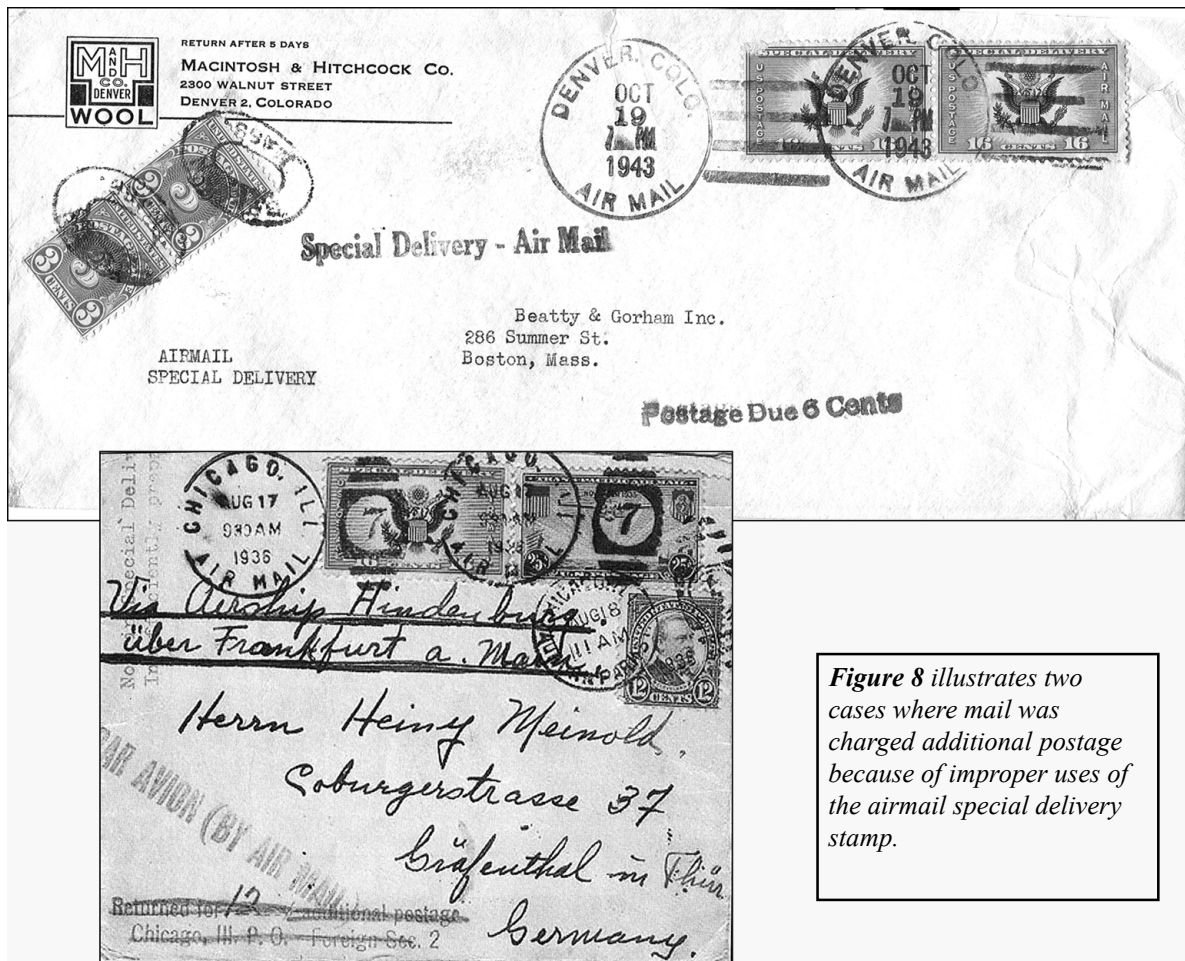 M AND H
CO.
DENVER
WOOL
RETURN AFTER 5 DAYS
MACINTOSH & HITCHCOCK CO.
2300 WALNUT STREET
DENVER 2, COLORADO
DENVER, COLO.
OCT
19
PM
1943
AIR MAIL
SPECIAL DELIVERY
U.S. POSTAGE
DENVER, COLO
OCT
19
PM
1943
AIR MAIL
SPECIAL DELIVERY
US POSTAGE
AIR MAIL
16 CENTS 16
3 3
3 CENTS 3
Special Delivery - Air Mail
Beatty & Gorham Inc.
286 Summer St.
Boston, Mass.
AIRMAIL
SPECIAL DELIVERY
Postage Due 6 Cents
CHICAGO, ILL.
AUG 17
930AM
1936
AIR MAIL
7
CHICAGO, ILL
AUG 17
1936
AIR MAIL
7
25¢ 25¢
AUG 18
11 AM
1936
12 CENTS 12
Special Deliv
Via Airship Hindenburg
über Frankfurt a. Main.
Herrn Heiny Meinold,
Coburgerstrasse 37
Gräfenthal in Thür
Germany.
PAR AVION (BY AIR MAIL)
Returned for 12 additional postage
Chicago, Ill. P. O. - Foreign Sec. 2
Figure 8 illustrates two
cases where mail was
charged additional postage
because of improper uses of
the airmail special delivery
stamp.